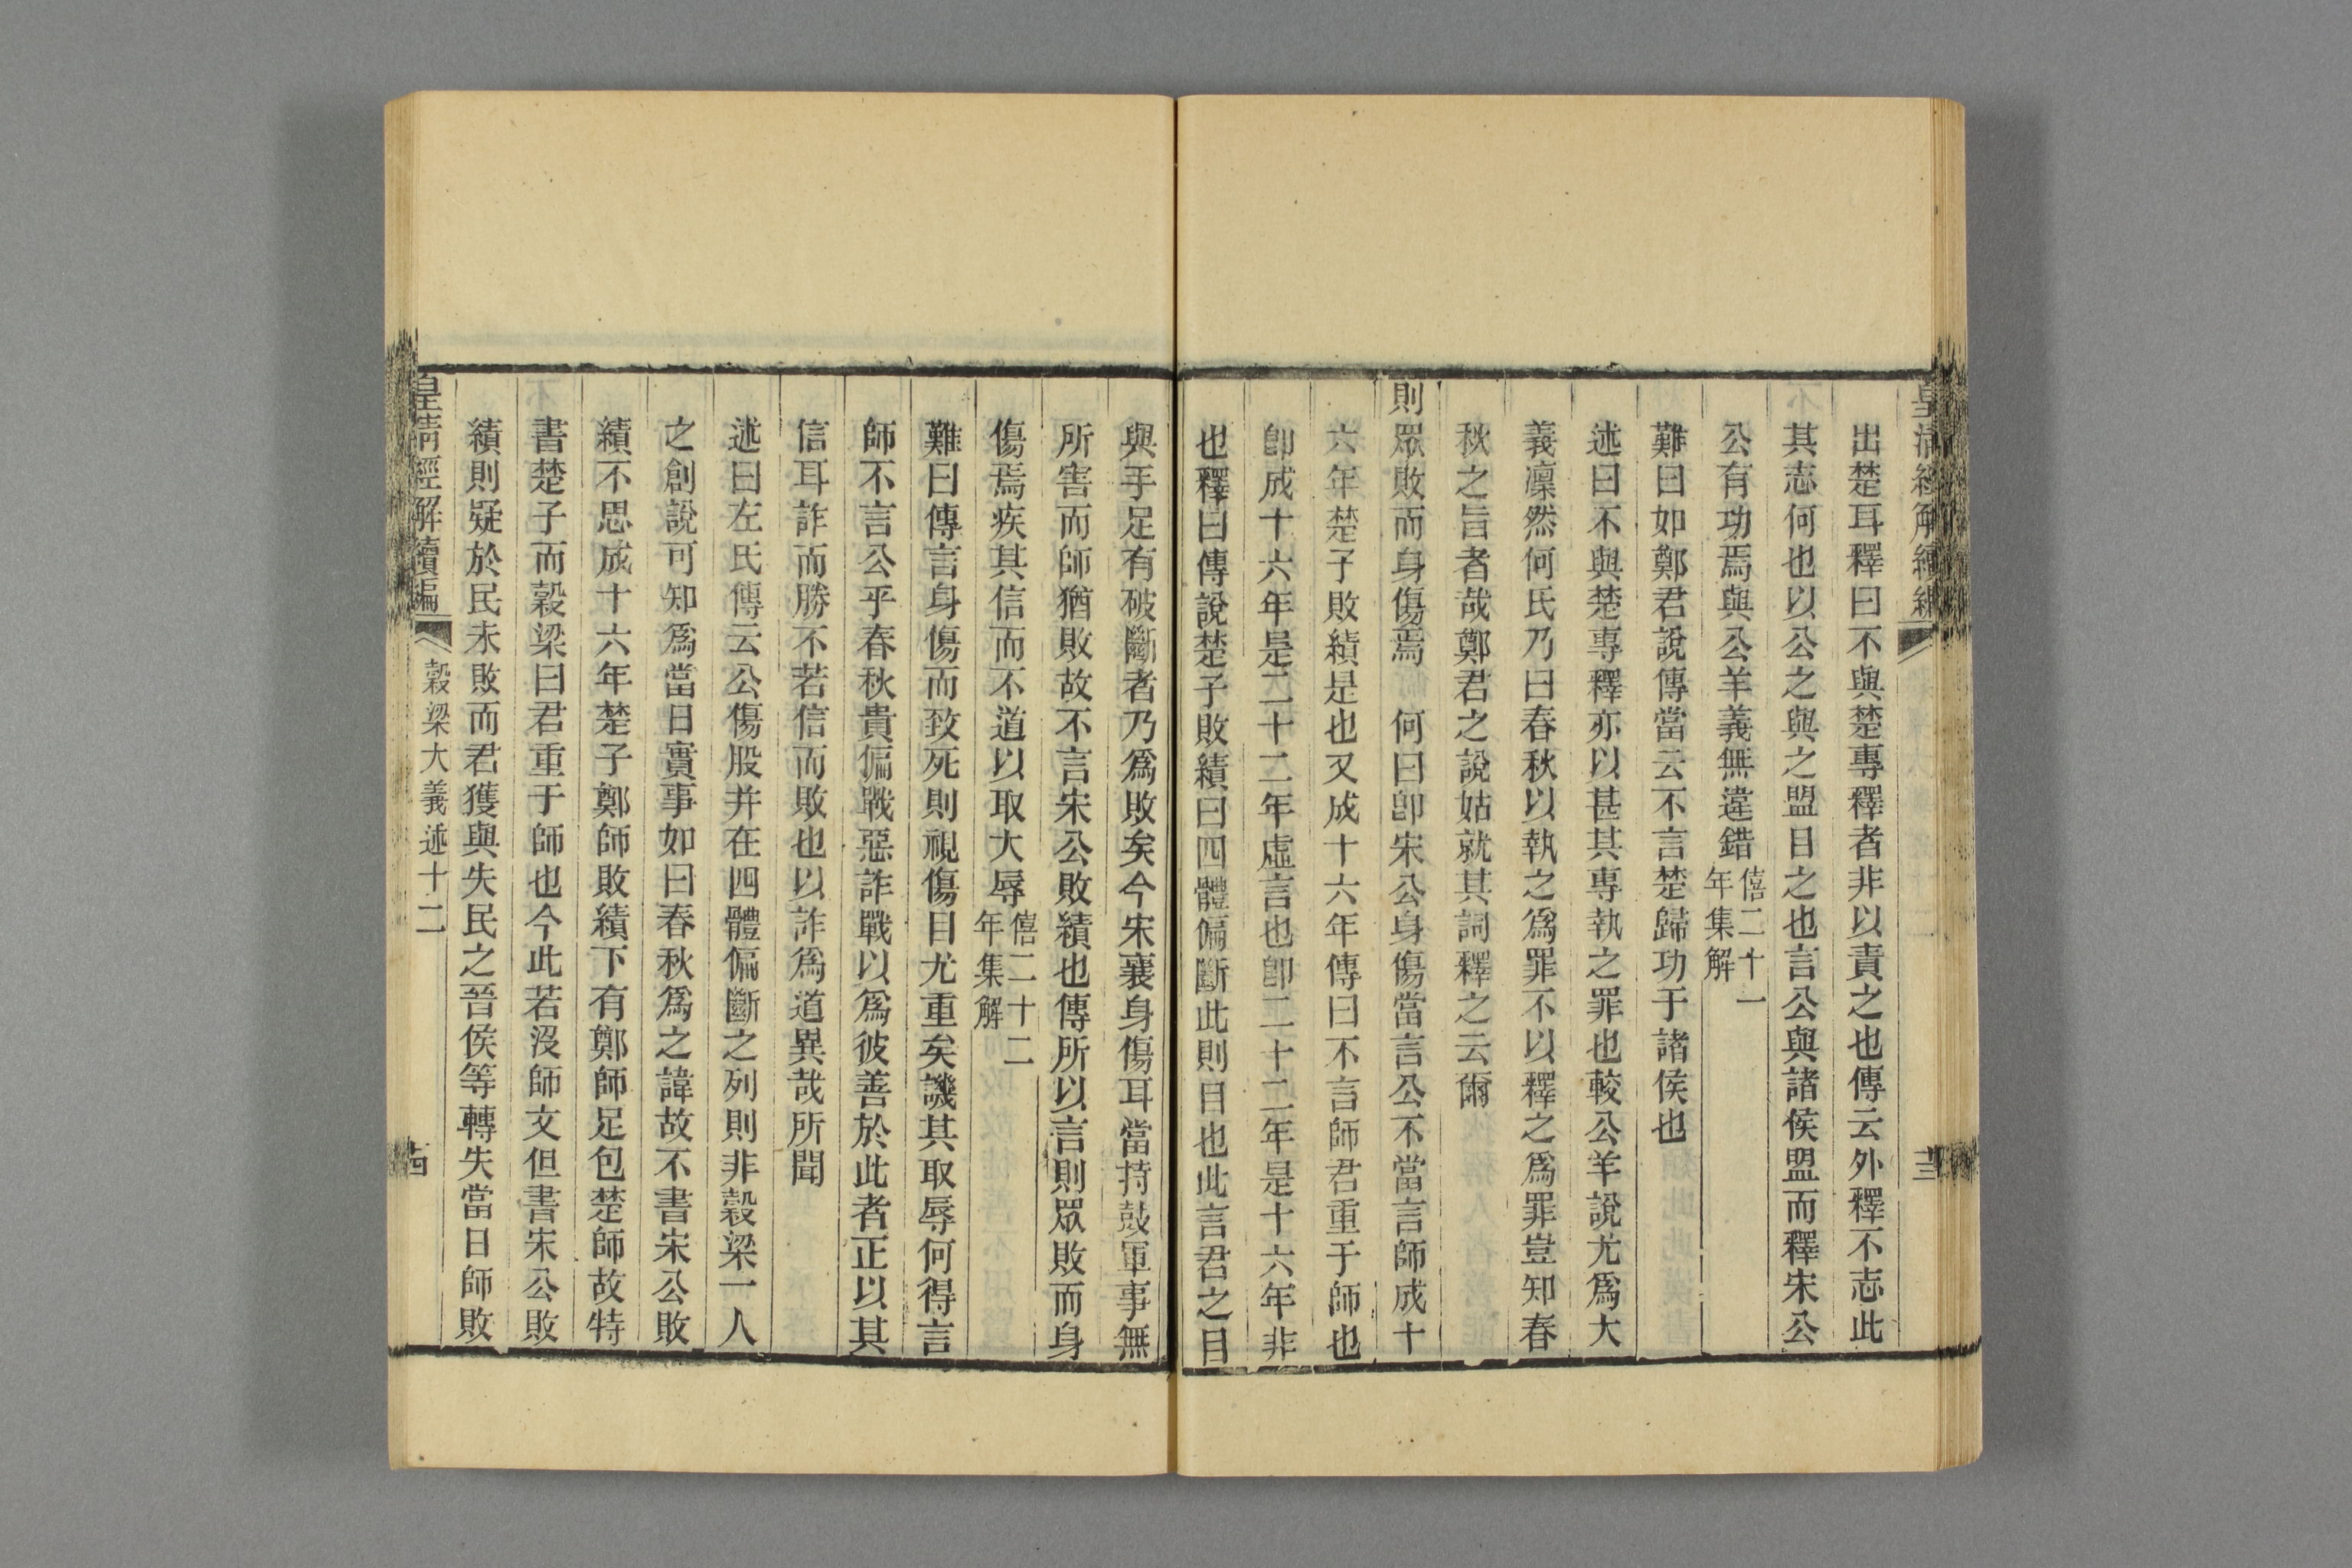 皇清經解續編
十三
出楚耳釋曰不與楚專釋者非以責之也傳云外釋不志此
其志何也以公之與之盟目之也言公與諸侯盟而釋宋公
公有功焉與公羊義無違錯僖二十一年集解
難曰如鄭君說傳當云不言楚歸功于諸侯也
述曰不與楚專釋亦以甚其專執之罪也較公羊說尤爲大
義凜然何氏乃曰春秋以執之爲罪不以釋之爲罪豈知春
秋之旨者哉鄭君之說姑就其詞釋之云爾
則眾敗而身傷焉 何曰卽宋公身傷當言公不當言師成十
六年楚子敗績是也又成十六年傳曰不言師君重于師也
卽成十六年是二十二年虛言也卽二十二年是十六年非
也釋曰傳說楚子敗績曰四體偏斷此則目也此言君之目
與手足有破斷者乃爲敗矣今宋襄身傷耳當持鼓軍事無
所害而師猶敗故不言宋公敗績也傳所以言則眾敗而身
傷焉疾其信而不道以取大辱僖二十二年集解
難曰傳言身傷而致死則視傷目尤重矣譏其取辱何得言
師不言公乎春秋貴偏戰惡詐戰以爲彼善於此者正以其
信耳詐而勝不若信而敗也以詐爲道異哉所聞
述曰左氏傳云公傷股并在四體偏斷之列則非穀梁一人
之創說可知爲當日實事如曰春秋爲之諱故不書宋公敗
績不思成十六年楚子鄭師敗績下有鄭師足包楚師故特
書楚子而穀梁曰君重于師也今此若沒師文但書宋公敗
績則疑於民未敗而君獲與失民之晉侯等轉失當日師敗
皇清經解續編
穀梁大義述十二
十四